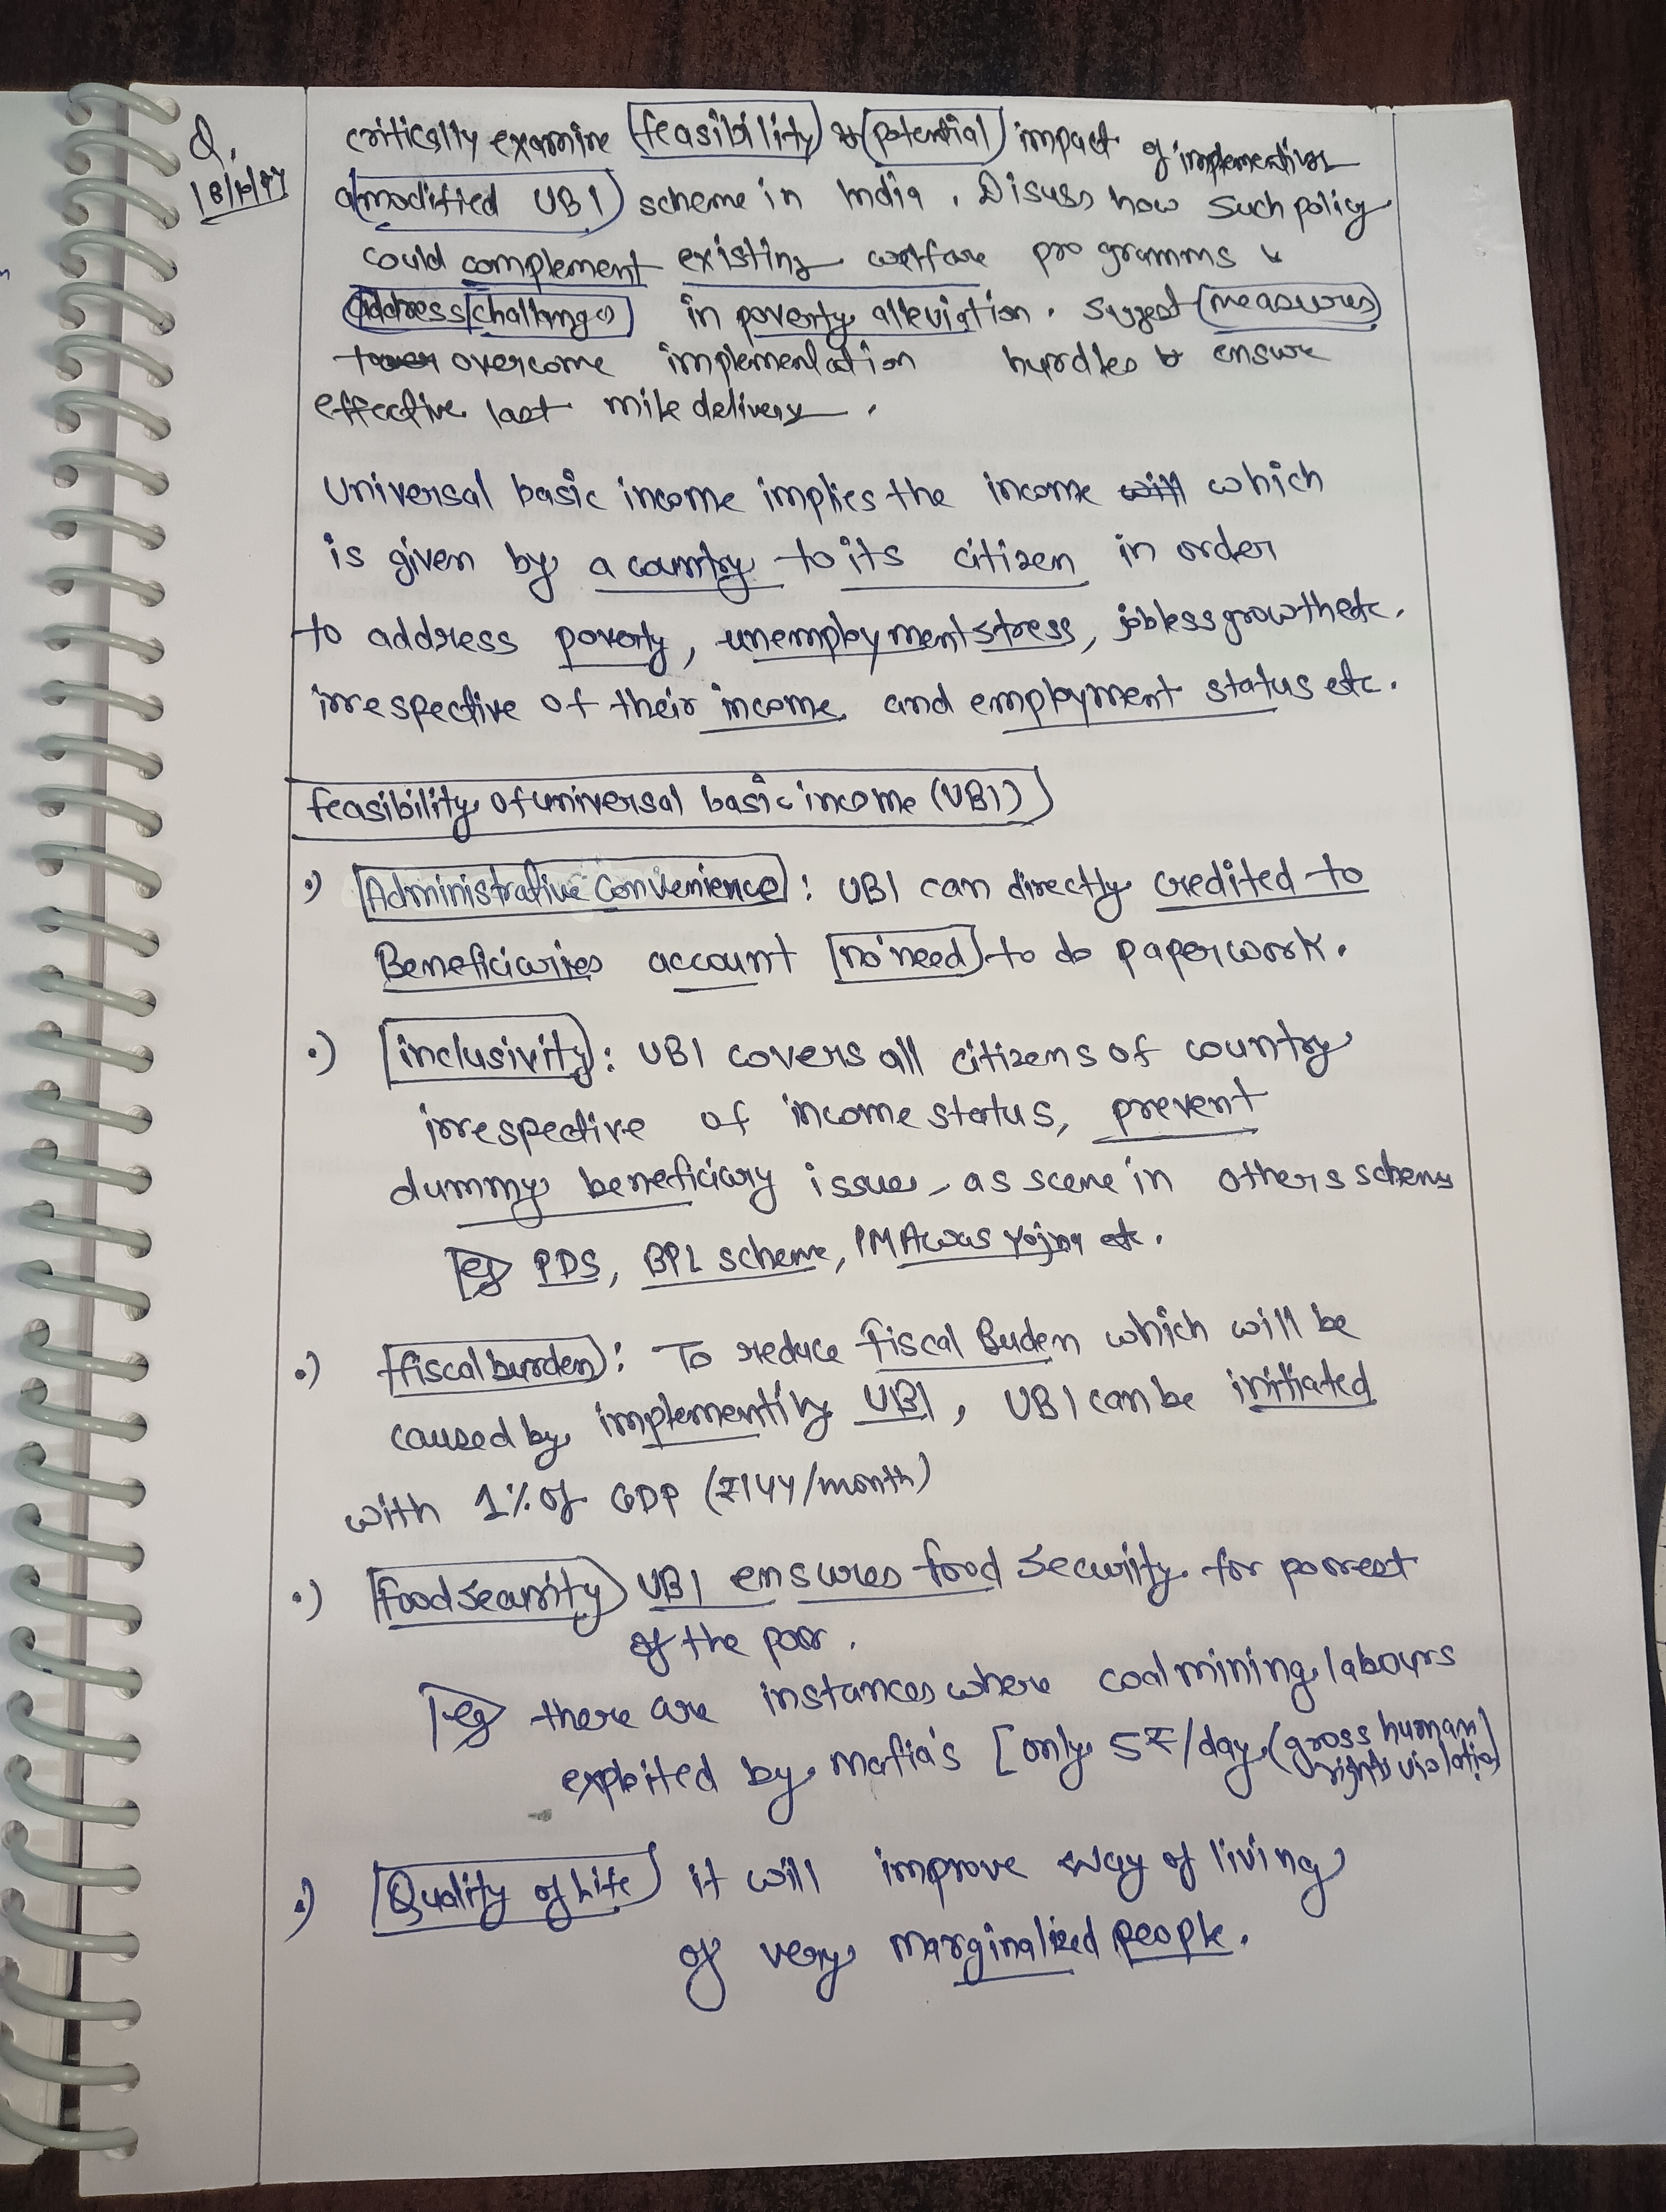 Q. critically examine feasibility & potential impact of implementing
a modified UBI scheme in India. Discuss how such policy
could complement existing welfare programms &
address challenges in poverty alleviation. suggest measures
overcome implementation hurdles & ensure
effective last mile delivery.
Universal basic income implies the income which
is given by a country to its citizen in order
to address poverty, unemployment stress, jobless growth etc.
irrespective of their income and employment status etc.
feasibility of universal basic income (UBI)
Administrative Convenience: UBI can directly credited to
Beneficiaries account no need to do paperwork.
inclusivity: UBI covers all citizens of country
irrespective of income status, prevent
dummy beneficiary issue, as scene in others schems
eg PDS, BPL scheme, PM Awas Yojna etc.
fiscal burden: To reduce fiscal Buden which will be
caused by implementing UBI, UBI can be initiated
with 1% of GDP (₹144/month)
food security UBI ensures food security for poorest
of the poor.
eg there are instances where coal mining labours
exploited by mafia's [only 5₹/day (gross human
rights violation)
Quality of Life it will improve way of living
of very marginalized people.